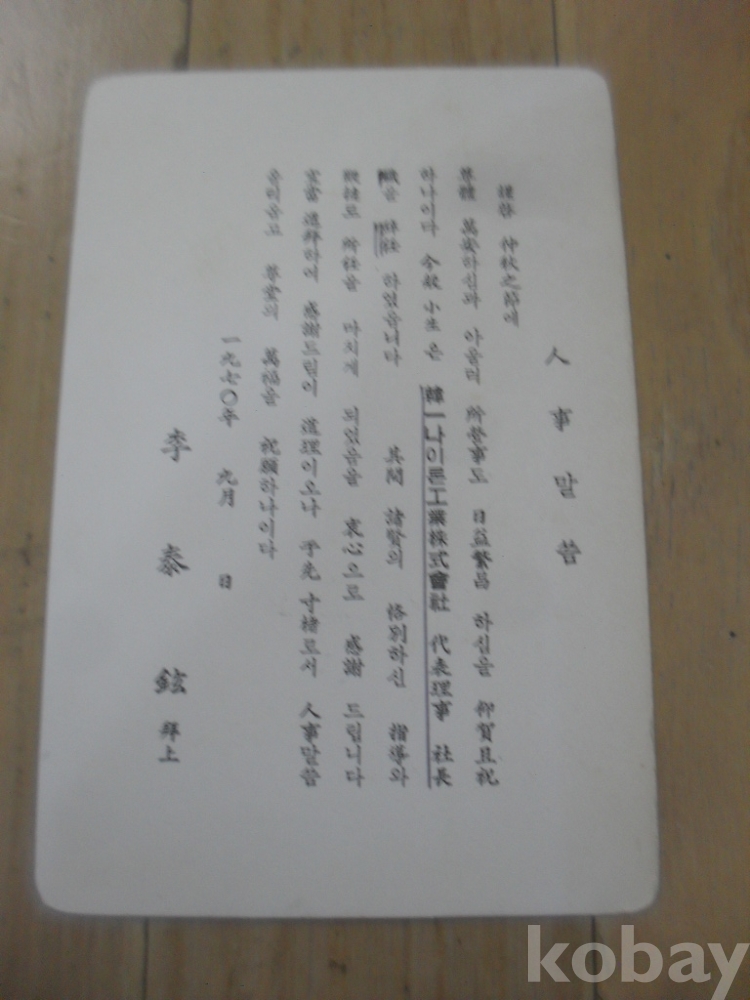 人事말씀
謹啓 仲秋之節에
尊體 萬安하신과 아울러 所營事도 日益繁昌 하심을 仰賀且祝
하나이다 今般 小生은 韓一나이론工業株式會社 代表理事 社長
職을 辭任 하였습니다 其間 諸賢의 恪別하신 指導와
로 所任을 마치게 되었음을 衷心으로 感謝 드립니다
宜當 進拜하여 感謝드림이 道理이오나 于先 寸楮로서 人事말씀
올리옵고 尊堂의 萬福을 祝願하나이다
一九七〇年 九月 日
李泰鉉 拜上
kobay